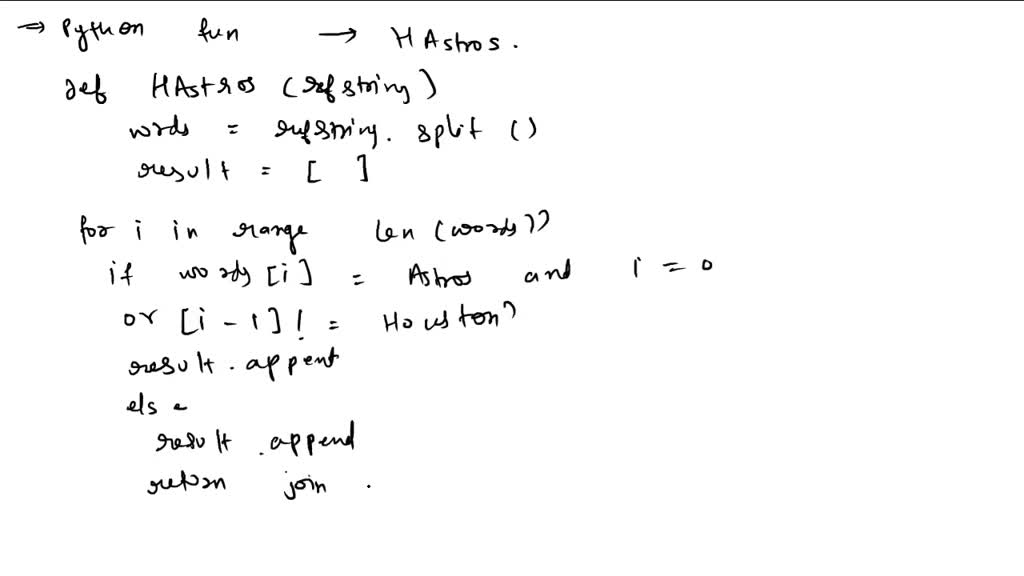 ⇒ Python fun → HAstros.
def HAstros (refstring)
words = refstring. split ()
result = [ ]
for i in range len (words))
if words [i] = Astros and i = 0
or [i - 1] != Houston)
result . appent
else
result . append
return join .